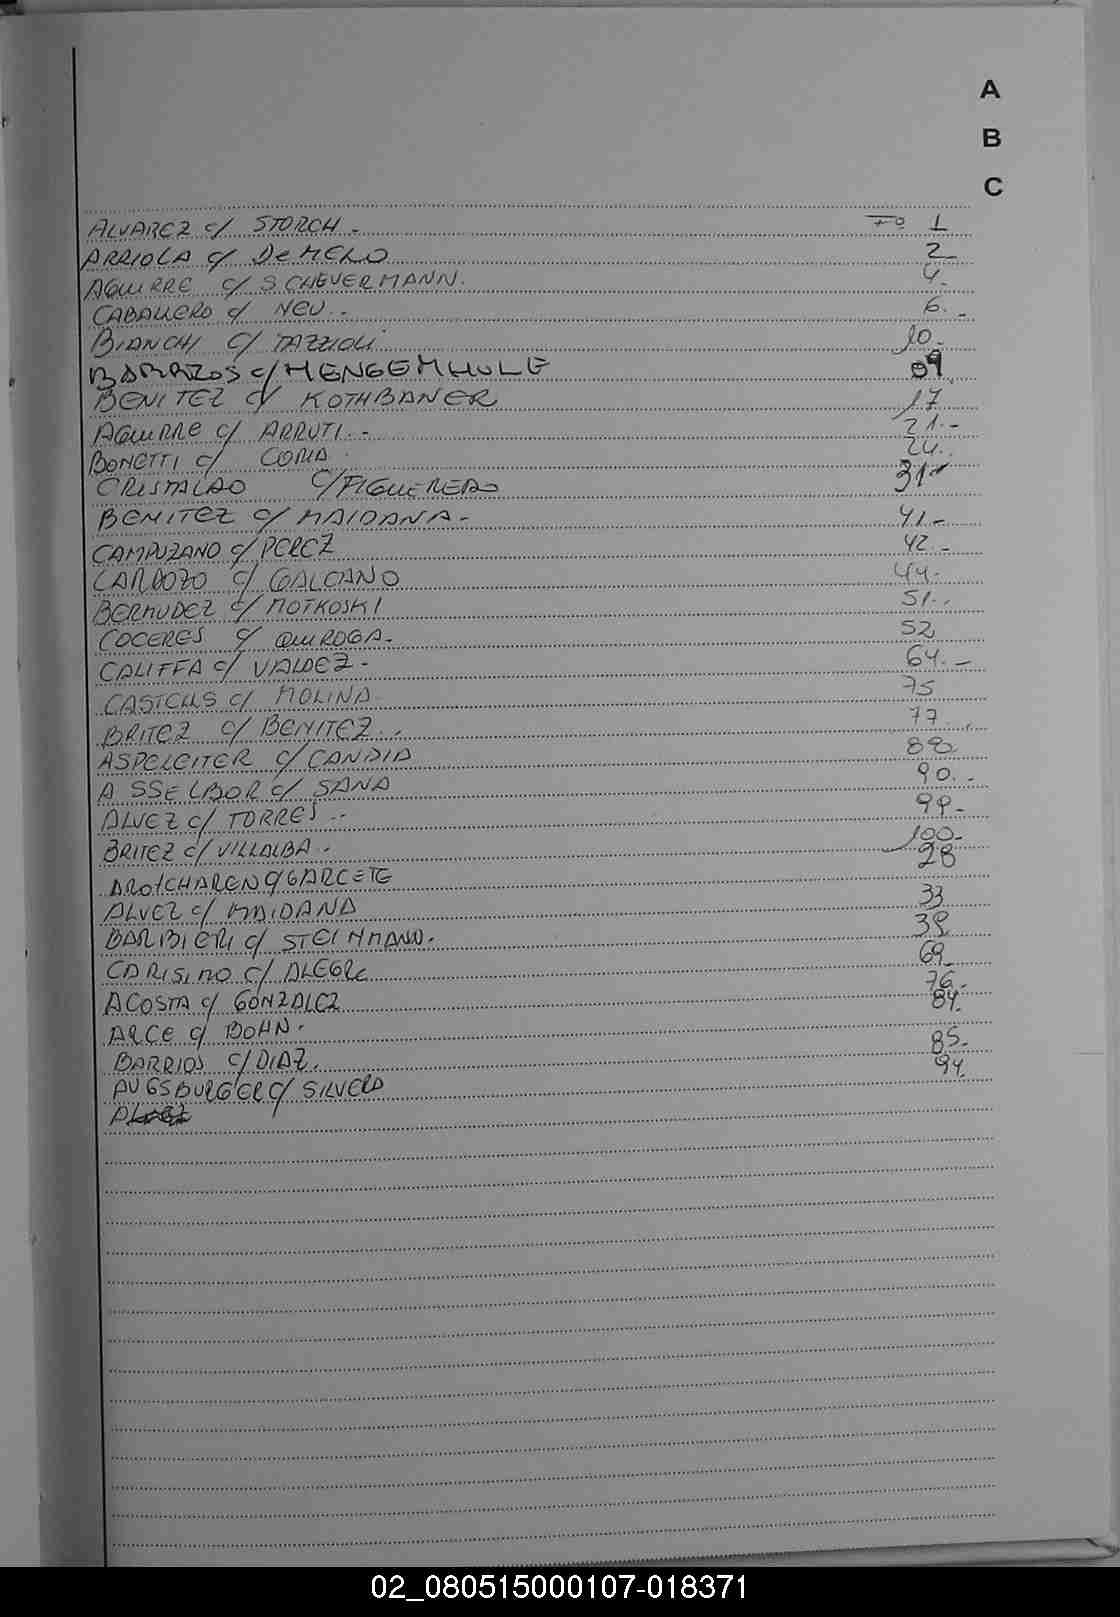 A
B
C
ALVAREZ c/ STORCH. Fo 1
ARRIOLA c/ DeMELO 2
AGUIRRE c/ SCHEVERMANN. 4.
CABALLERO c/ NEU.. 6.-
BIANCHI c/ TAZZIOLI 10.-
BARRIOS c/ MENGEMHULE 09
BENITEZ c/ KOTHBANER 17
AGUIRRE c/ ARRUTI.- 21.-
BONETTI c/ CORIA. 24..
CRISTALDO c/ FIGUEREDO 31
BENITEZ c/ MAIDANA- 41.-
CAMPUZANO c/ PEREZ 42.-
CARDOZO c/ GALEANO 44.-
BERMUDEZ c/ MOTKOSKI 51..
COCERES c/ QUIROGA. 52
CALIFFA c/ VALDEZ- 64.-
CASTELLS c/ MOLINA. 75
BRITEZ c/ BENITEZ.. 77...
ASPELEITER c/ CANDIA 88
ASSELBOR c/ SANA 90.-
ALVEZ c/ TORRES.. 99-
BRITEZ c/ VILLALBA.. 100-
AROTCHAREN c/ GARCETE 28
ALVEZ c/ MAIDANA 33
BARBIERI c/ STEINMANN. 38
CARISIMO c/ ALEGRE 69
ACOSTA c/ GONZALEZ 76.
ARCE c/ BOHN. 84.
BARRIOS c/ DIAZ. 85.
AUGSBURGER c/ SILVERO 94.
02_080515000107-018371